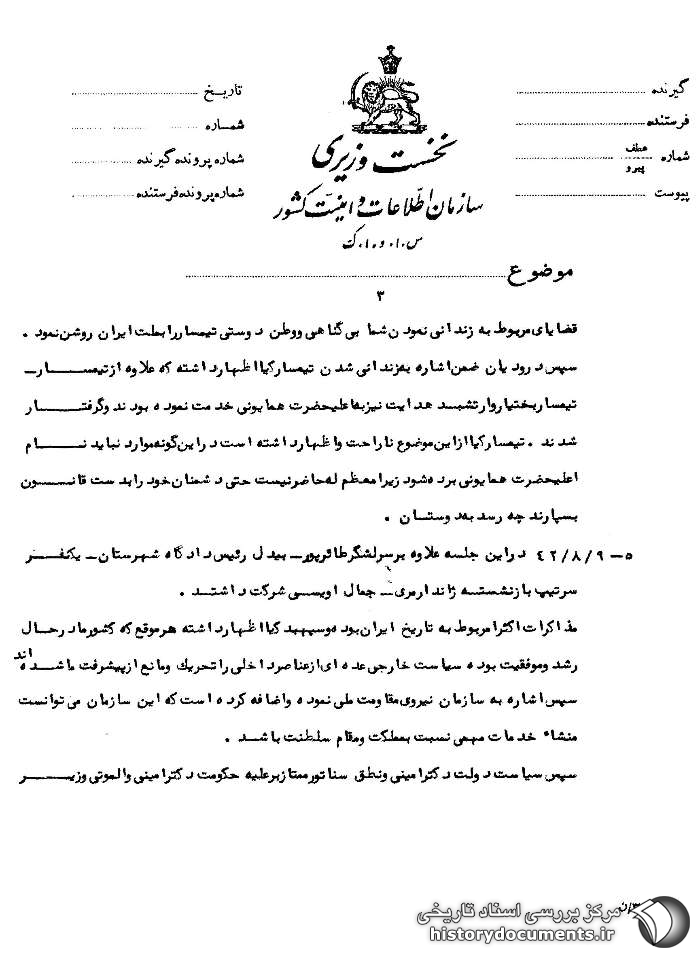 گیرنده
فرستنده
شماره عطف پیرو
پیوست
تاریخ
شماره
شماره پرونده گیرنده
شماره پرونده فرستنده
نخست وزیری
سازمان اطلاعات و امنیت کشور
س.ا.و.ا.ک
موضوع
۳
قضایای مربوط به زندانی نمودن شما بی گناهی ووطن دوستی تیمسار رابملت ایران روشن نمود .
سپس درودیان ضمن اشاره به زندانی شدن تیمسارکیا اظهارداشته که علاوه از تیمسار ـ
تیمساربختیاروارتشبد هدایت نیز به اعلیحضرت همایونی خدمت نموده بودند وگرفتار
شدند . تیمسارکیا ازاین موضوع ناراحت واظهارداشته است دراین گونه موارد نباید نام
اعلیحضرت همایونی برده شود زیرا معظم له حاضرنیست حتی دشمنان خود رابدست قانون
بسپارند چه رسد به دوستان .
۵ـ ۴۲/۸/۹ دراین جلسه علاوه برسرلشگر طائرپور ـ بیدل رئیس دادگاه شهرستان ـ یکنفر
سرتیپ بازنشسته ژاندارمری ـ جمال اویسی شرکت داشتند .
مذاکرات اکثرا مربوط به تاریخ ایران بوده وسپهبد کیا اظهارداشته هرموقع که کشورما درحال
رشد وموفقیت بوده سیاست خارجی عده ای ازعناصرداخلی را تحریك ومانع ازپیشرفت ما شده اند
سپس اشاره به سازمان نیروی مقاومت ملی نموده واضافه کرده است که این سازمان می توانست
منشاء خدمات مهمی نسبت بمملکت ومقام سلطنت باشد .
سپس سیاست دولت دکترامینی ونطق سناتورممتاز برعلیه حکومت دکترامینی والموتی وزیر
مرکز بررسی اسناد تاریخی
historydocuments.ir